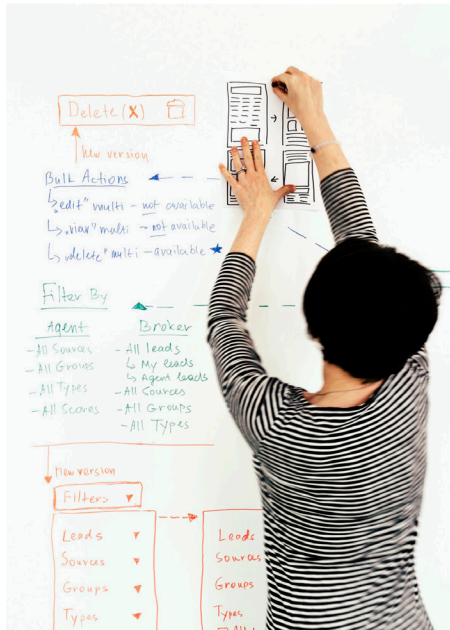 Delete (X)
New version
Bulk Actions
"edit" multi - not available
"view" multi - not available
"delete" multi - available
Filter By
Agent
- All Sources
- All Groups
- All Types
- All Scores
Broker
- All leads
My leads
Agent leads
- All Sources
- All Groups
- All Types
New version
Filters
Leads
Sources
Groups
Types
Leads
Sources
Groups
Types